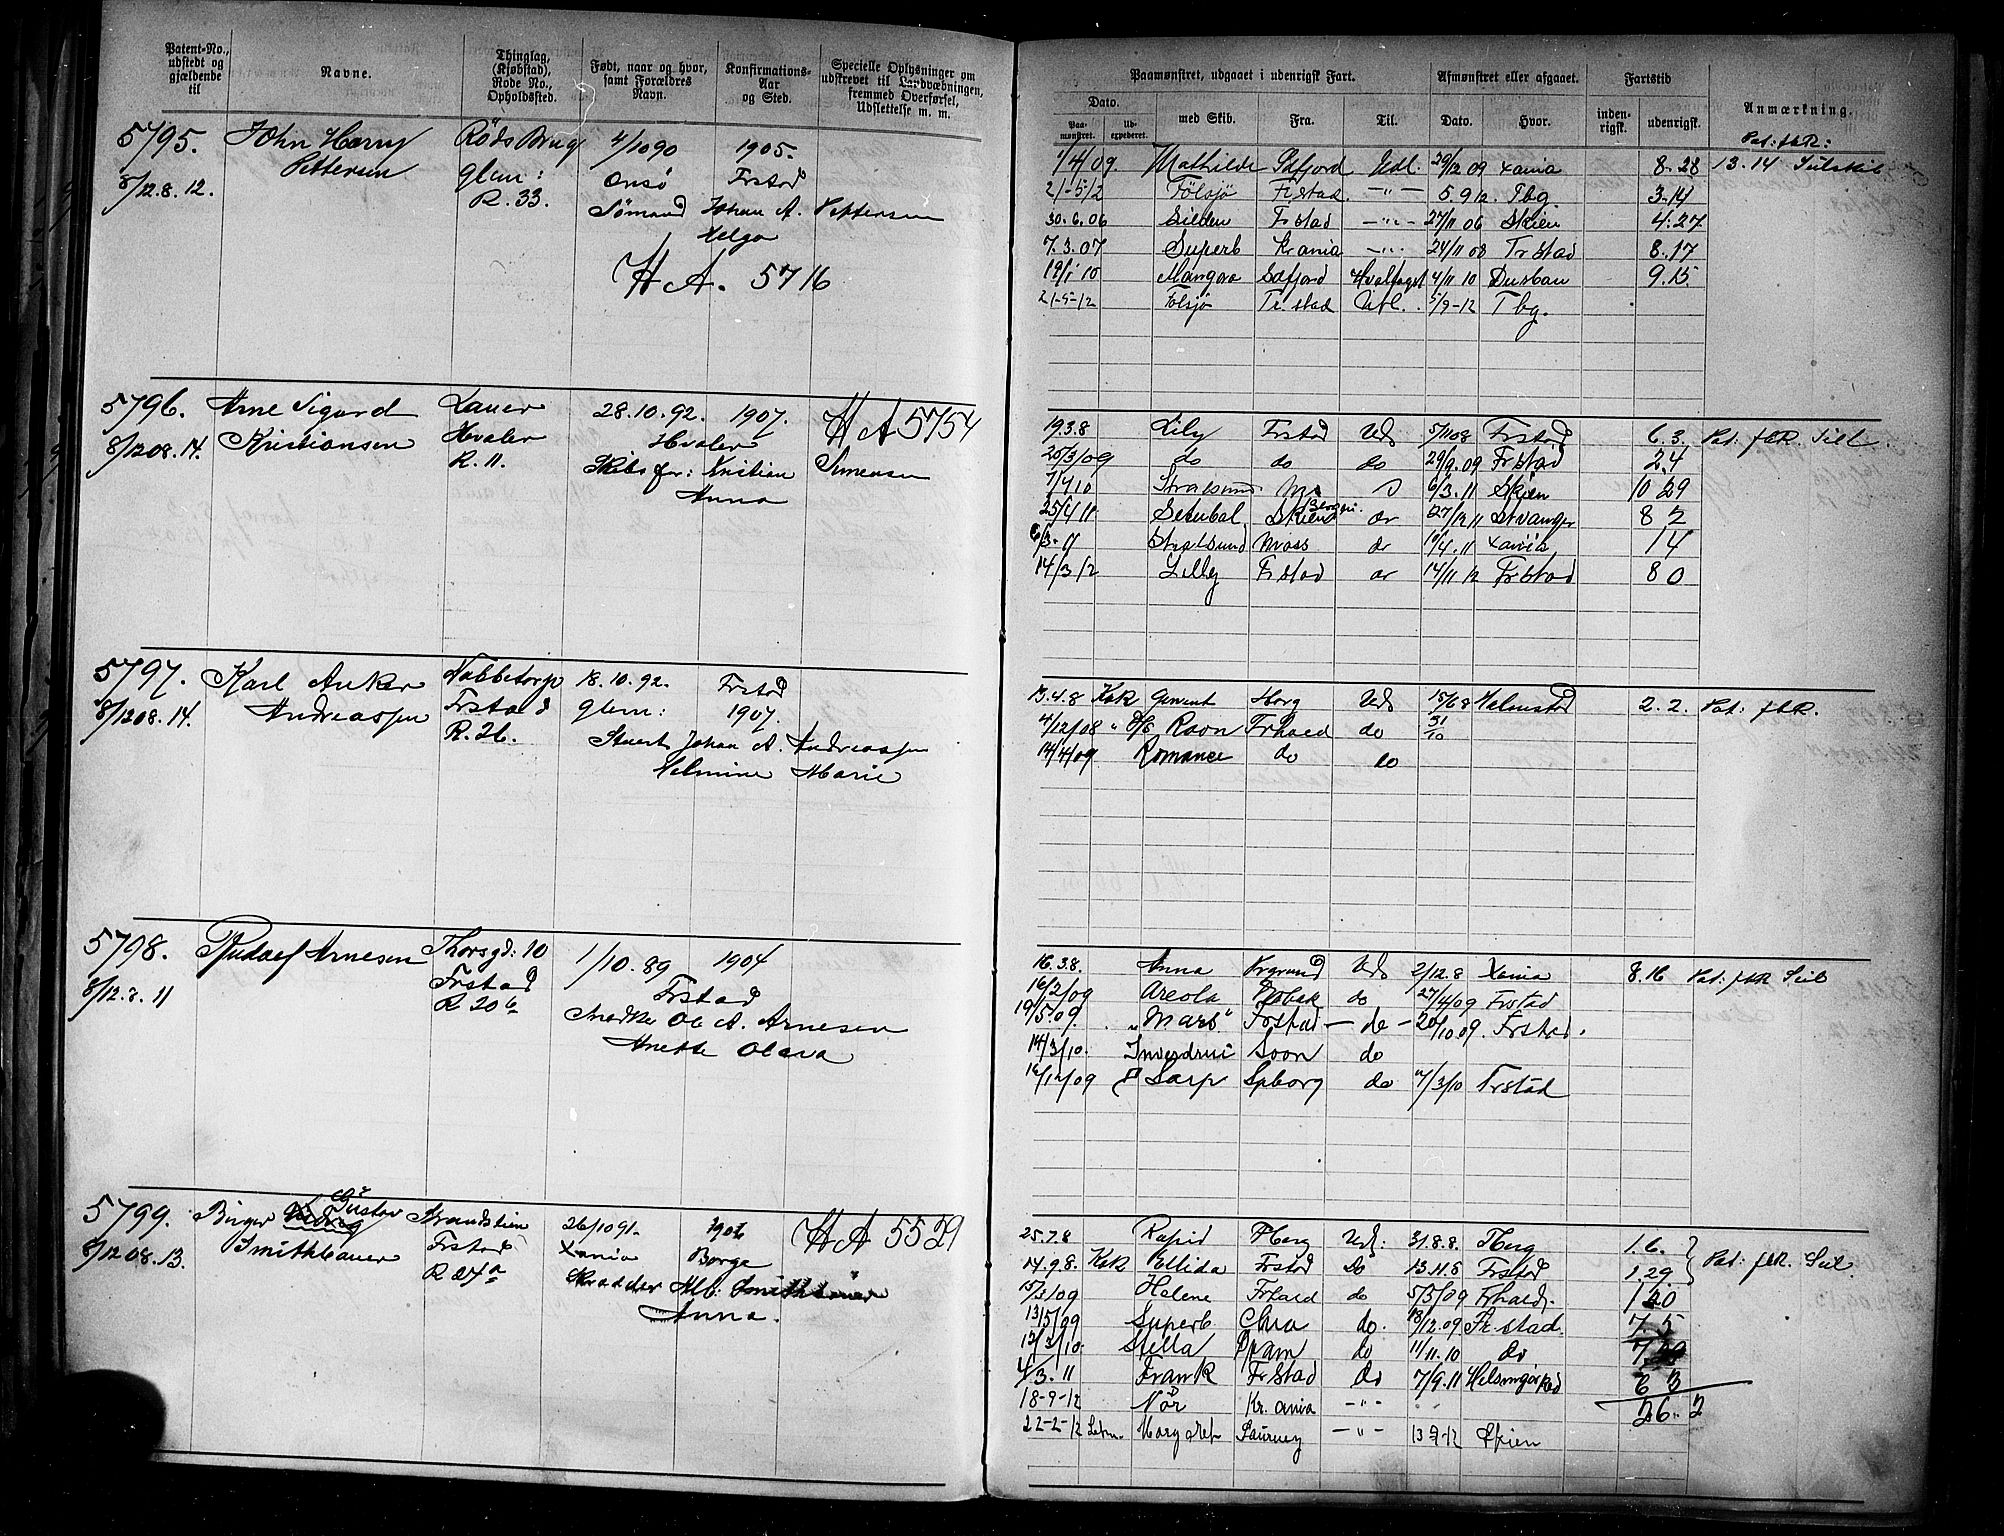 Patent-No., udstedt og gjældende til
Navne.
Thinglag, (Kjøbstad), Rode No., Opholdssted.
Født, naar og hvor, samt Forældres Navn.
Konfirmations-Aar og Sted.
Specielle Oplysninger om udskrevet til Landværdningen, fremmed Overførsel, Udslettelse m. m.
5795. John Harry Röds Brug 4/10 90 1905.
Pettersen
8/12.8.12. Glem: Onsö Frstad
R. 33. Sömand Johan A. Pettersen
Helga
H A. 5716
5796. Arne Sigurd Lauer 28.10.92. 1907. H A 5754
8/12 08.14. Kristiansen Hvaler Hvaler
R. 11. Skibsför: Kristian Simensen
Anna
5797. Karl Anker Nabbetorp 18.10.92. Frstad
8/12 08.14. Andreassen Frstad Glem: 1907.
R. 26. Stuert Johan A. Andreassen
Helmine Marie
5798. Rudolf Arnesen Thorsgd: 10 1/10.89 1904
8/12.8.11 Frstad Frstad
R 20 b Ole A. Arnesen
Anette Olava
Gustav
5799. Birger Strandstien 26/10 91. H A 5529
8/12 08.13. Smithbauer Frstad Xania Borge
R 24 a Skrædder Alb: Smithbauer
Anna.
Paamønstret, udgaaet i udenrigsk Fart.
Afmønstret eller afgaaet.
Fartstid
Anmærkning.
Dato.
Paamønstret.
Udexpederet.
med Skib.
Fra.
Til.
Dato.
Hvor.
indenrigsk.
udenrigsk.
Pat: fkR:
1/4 09. Mathilde Sefjord Udl. 29/12 09 Xania 8.28 13.14
21-5-12 Fölsjö Frstad. -"- 5.9 12. Tbg. 3.14
30.6.06 Gelden Frstad -"- 27/11 06 Skien 4.27
7.3.07 Superb Krania -"- 24/11 08 Frstad 8.17
19/1 10 Mangara Sefjord Hvalfagst 4/11 10 Durban 9.15
21-5-12 Fölsjö Fr.stad Utl. 5/9-12 Tbg.
19.3.8 Lily Frstad Uds 5/11 08 Frstad 6.3. Pat: fkR.
20/3/09 do do do 29/9.09 Frstad 24
1/4 10 Stralsund 6/3.11 Skien 10 29
25/4 11 Setubal Skien 27/12 11 Stvanger 82
Stralsund Moss do 10/4.11 Xania 14
14/3/12 Lilly Frstad 14/11 12 Frstad 80
13.4.8 KkR Gerent Horg Uds 15/6 8 Halmstad 2.2. Pat: fkR.
4/12/08 " D/S Ravn Frhald do 31/10
14/4/09 Romance do do
16.3.8. Anna Krgrund Uds 2/12.8 Xania 8.16 Pat: fkR
16/2/09 Areola Drobak do 27/4/09 Frstad
19/5 09. "Mars" Frstad - do - 20/10 09. Frstad.
14/3/10. Soon do
16/12/09 Sarp Spborg do 7/3/10 Frstad
25.7.8 Rapid Uds: 31.8.8. Tberg 1.6.
14.9.8. KkR Ellida Frstad Do 13.11.8 Frstad 1.29 Pat: fkR.
15/3/09 Helene Frhald do 5/5/09 Frhald. 1 20
13/5/09 Superb Chra do. 18/12.09 Fr.stad. 7.5
12/3/10. Stella Dram do 11/11.10 do
4/3.11 Frank Frstad do 7/9.11 Helsingör
18-9-12 Nör Kr.ania -"- 26.2
22-2-12 -"- 13 12 Skien